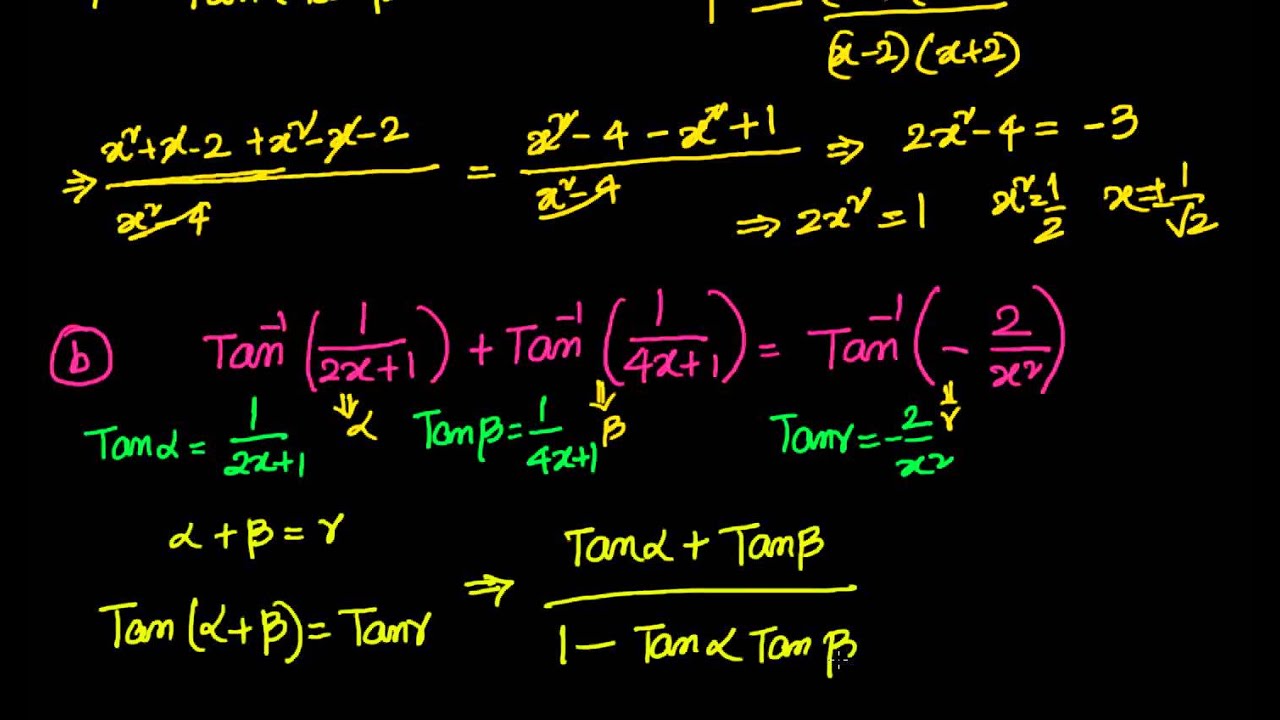 (x-2)(x+2)
⇒ (x²+x-2+x²-x-2)/(x²-4) = (x²-4-x²+1)/(x²-4) ⇒ 2x²-4 = -3
⇒ 2x² = 1 x²=1/2 x=±1/√2
(b) Tan⁻¹(1/(2x+1)) + Tan⁻¹(1/(4x+1)) = Tan⁻¹(-2/x²)
⇓ α ⇓ β ⇓ γ
Tanα = 1/(2x+1) Tanβ = 1/(4x+1) Tanγ = -2/x²
α + β = γ
Tan(α+β) = Tanγ ⇒ (Tanα + Tanβ)/(1 - Tanα Tanβ)